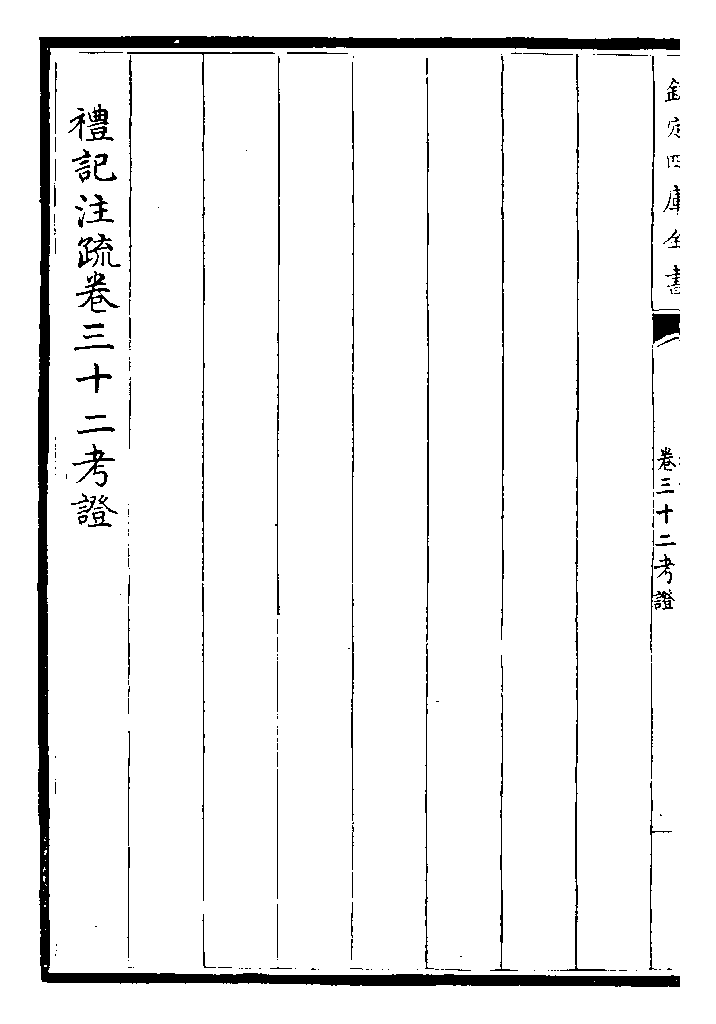 欽定四庫全書
卷三十二考證
禮記注疏卷三十二考證